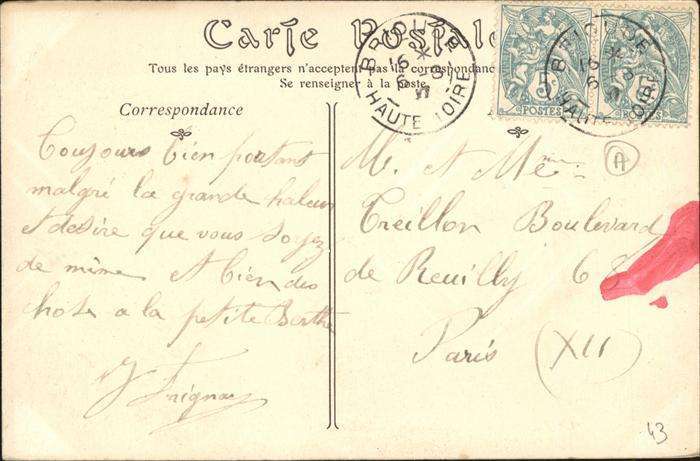 Carte Postale
Tous les pays étrangers n'acceptent pas la correspondance
Se renseigner à la poste
Correspondance
Toujours bien portant
malgré la grande haleur
et desire que vous soyez
de même et bien des
chose a la petite Berthe
M. et Me
Treillon Boulevard
de Reuilly 68
Paris (XII)
A
BRIOUDE
HAUTE LOIRE
BRIOUDE
HAUTE LOIRE
5
POSTES
5
POSTES
43